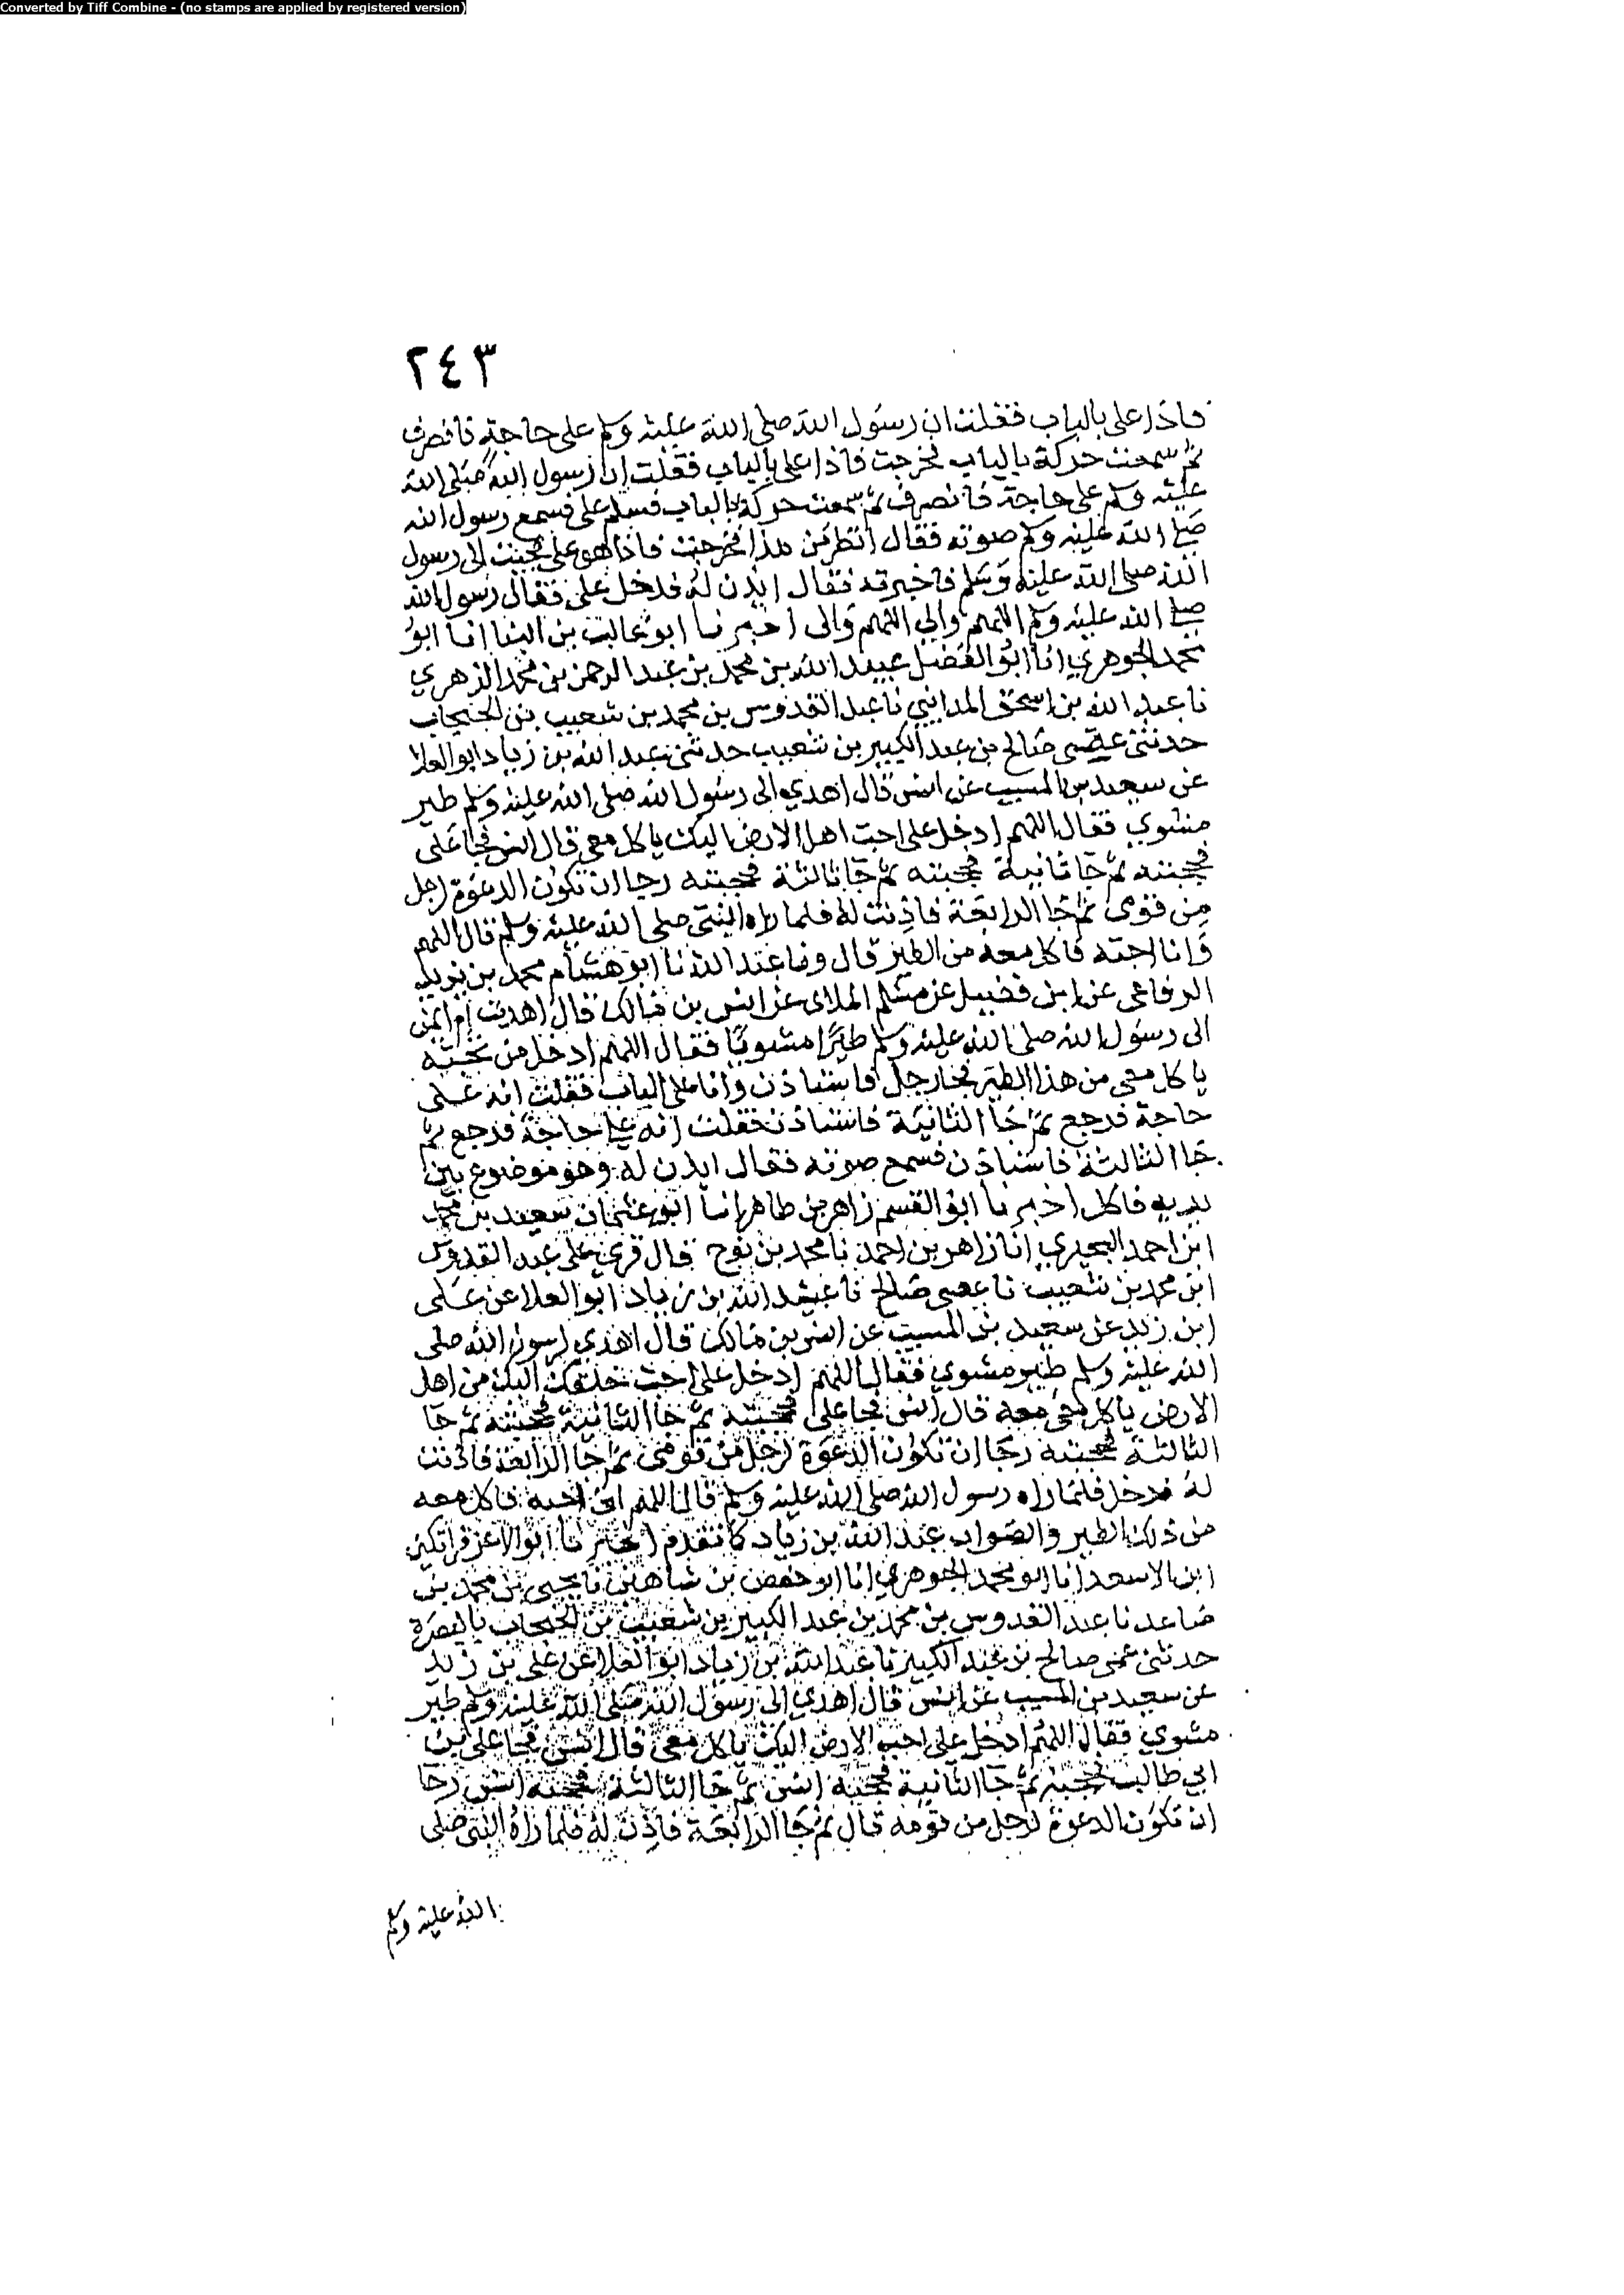 Converted by Tiff Combine - (no stamps are applied by registered version)
٢٤٣
فاذا على بالباب فقلت ان رسول الله صلى الله عليه وسلم على حاجة فانصرف
ثم سمعت حركة بالباب فخرجت فاذا على بالباب فقلت ان رسول الله صلى الله
عليه وسلم على حاجة فانصرف ثم سمعت حركة بالباب فسلم على فسمع رسول الله
صلى الله عليه وسلم صوته فقال انظر من هذا فخرجت فاذا هو على فجئت الى رسول
الله صلى الله عليه وسلم فاخبرته فقال ايذن له فدخل على فقال رسول الله
صلى الله عليه وسلم اللهم والي اللهم والي اخبرنا ابو غالب بن البنا انا ابو
محمد الجوهري انا ابو الفضل عبيد الله بن محمد بن عبد الرحمن بن محمد الزهري
نا عبد الله بن اسحق المدايني نا عبد القدوس بن محمد بن شعيب بن الحبحاب
حدثني عمي صالح بن عبد الكبير بن شعيب حدثني عبد الله بن زياد ابو العلا
عن سعيد بن المسيب عن انس قال اهدي الى رسول الله صلى الله عليه وسلم طير
مشوي فقال اللهم ادخل على احب اهل الارض اليك ياكل معي قال انس فجا على
فحجبته ثم جا ثانية فحجبته ثم جا ثالثة فحجبته رجا ان تكون الدعوة لرجل
من قومي ثم جا الرابعة فاذنت له فلما راه النبي صلى الله عليه وسلم قال اللهم
وانا احبه فاكل معه من الطير قال ونا عبد الله نا ابو هشام محمد بن يزيد
الرفاعي عن ابن فضيل عن مسلم الملاى عن انس بن مالك قال اهدت ام ايمن
الى رسول الله صلى الله عليه وسلم طيرا مشويا فقال اللهم ادخل من تحبه
ياكل معي من هذا الطير فجا رجل فاستاذن وانا على الباب فقلت انه على
حاجة فرجع ثم جا الثانية فاستاذن فقلت انه على حاجة فرجع ثم
جا الثالثة فاستاذن فسمع صوته فقال ايذن له وهو موضوع بين
يديه فاكل اخبرنا ابو القسم زاهر بن طاهر انا ابو عثمان سعيد بن محمد
ابن احمد البحيري انا زاهر بن احمد نا محمد بن نوح قال قرئ على عبد القدوس
ابن محمد بن شعيب نا عمي صالح نا عبيد الله بن زياد ابو العلا عن على
ابن زيد عن سعيد بن المسيب عن انس بن مالك قال اهدي لرسول الله صلى
الله عليه وسلم طير مشوي فقال اللهم ادخل على احب خلقك اليك من اهل
الارض ياكل معي معه قال انس فجا على فحجبته ثم جا الثانية فحجبته ثم جا
الثالثة فحجبته رجا ان تكون الدعوة لرجل من قومي ثم جا الرابعة فاذنت
له فدخل فلما راه رسول الله صلى الله عليه وسلم قال اللهم اني احبه فاكل معه
من ذلك الطير والصواب عبد الله بن زياد كما تقدم اخبرنا ابو الاعز قراتكين
ابن الاسعد انا ابو محمد الجوهري انا ابو حفص بن شاهين نا يحيى بن محمد بن
صاعد نا عبد القدوس بن محمد بن عبد الكبير بن شعيب بن الحبحاب بالبصرة
حدثني عمي صالح بن عبد الكبير نا عبد الله بن زياد ابو العلا عن علي بن زيد
عن سعيد بن المسيب عن انس قال اهدي الى رسول الله صلى الله عليه وسلم طير
مشوي فقال اللهم ادخل على احب الارض اليك ياكل معي قال انس فجا على بن
ابي طالب فحجبته ثم جا الثانية فحجبه انس ثم جا الثالثة فحجبه انس رجا
ان تكون الدعوة لرجل من قومه قال ثم جا الرابعة فاذن له فلما راه النبي صلى
الله عليه وسلم